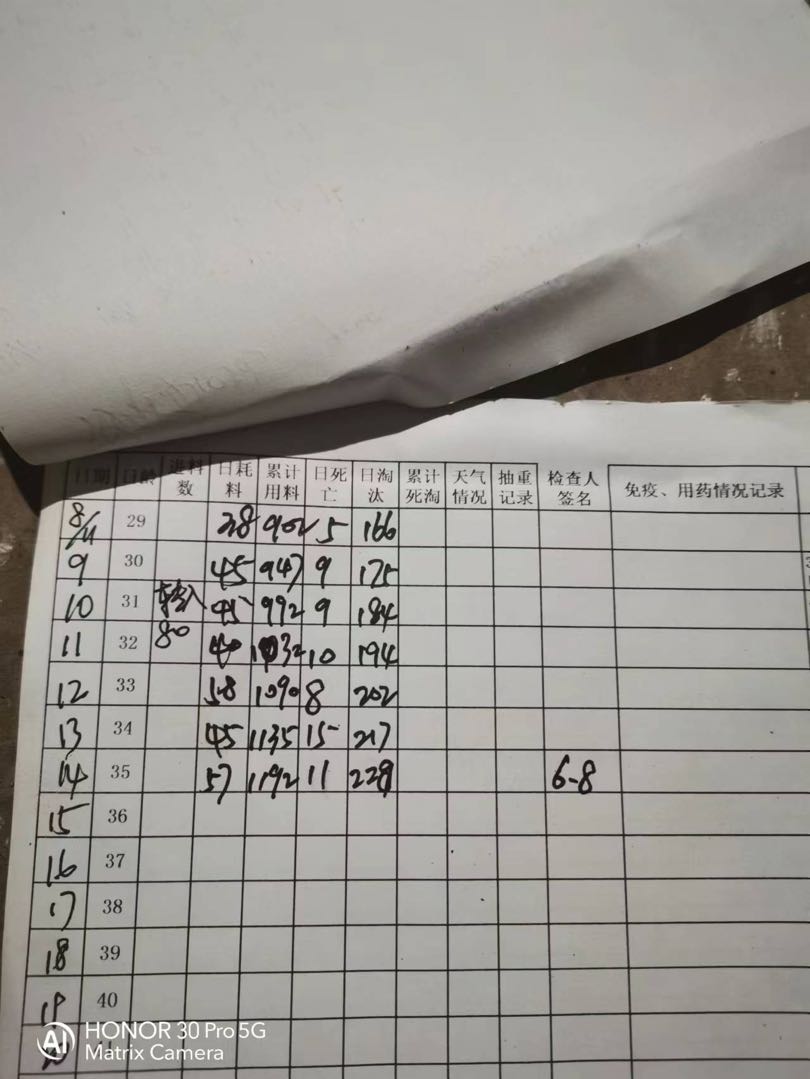 日期 日龄 进料数 日耗料 累计用料 日死亡 日淘汰 累计死淘 天气情况 抽重记录 检查人签名 免疫、用药情况记录
8/11 29 38 902 5 166
9 30 45 947 9 175
10 31 转入 45 992 9 184
11 32 80 40 1032 10 194
12 33 58 1090 8 202
13 34 45 1135 15 217
14 35 57 1192 11 228 6-8
15 36
16 37
17 38
18 39
19 40
HONOR 30 Pro 5G
AI Matrix Camera